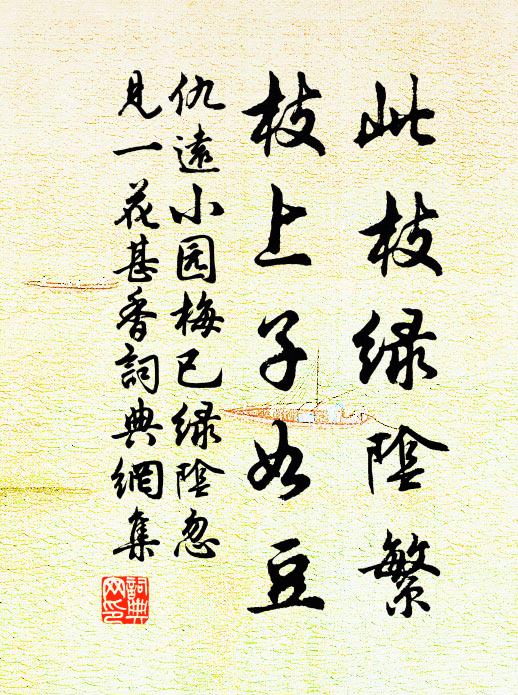 此枝绿陰繁
枝上子如豆
仇遠小园梅已绿陰忽
見一花甚香詞典網集
詞典
网印